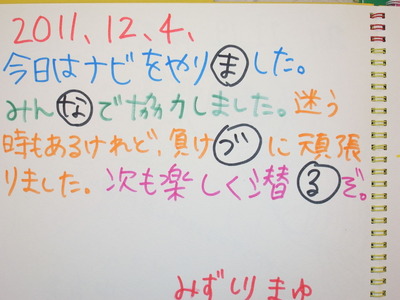 2011、12、4、
今日はナビをやりました。
みんなで協力しました。迷う
時もあるけれど、負けづに頑張
りました。次も楽しく潜るぞ。
みずしりまゆ